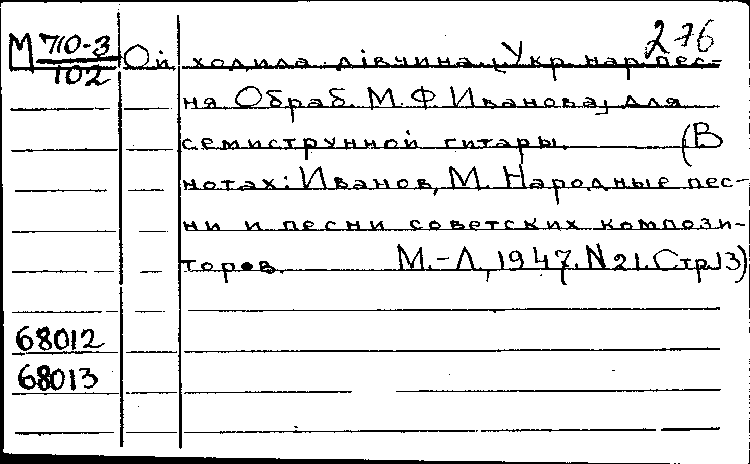 276
М 710-3
102
Ой ходила дівчина. Укр. нар. пес-
ня Обраб. М. Ф. Иванова, для
семиструнной гитары. (В
нотах: Иванов, М. Народные пес-
ни и песни советских компози-
торов. М.-Л., 1947. N21. Стр.13)
68012
68013